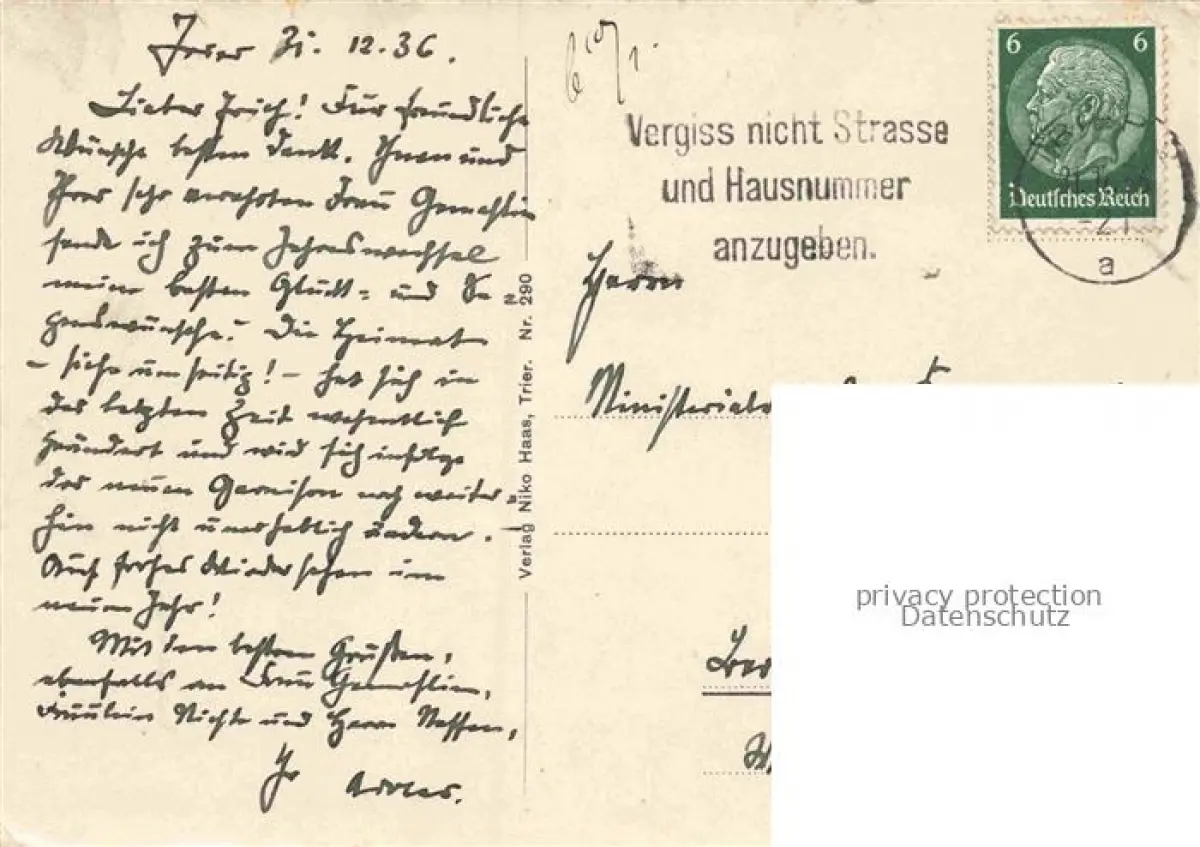 31. 12. 36.
Lieber Erich! Für freundliche
Wünsche besten Dank. Ihnen und
Ihrer sehr verehrten Frau Gemahlin
sende ich zum Jahreswechsel
meine besten Glück- und Se
genswünsche. Die Heimat
- siehe umseitig! - hat sich in
der letzten Zeit wesentlich
geändert und wird sich infolge
der neuen Garnison noch weiter-
hin nicht unerheblich ändern.
Auf frohes Wiedersehen im
neuen Jahr!
Mit den besten Grüßen,
ebenfalls an Frau Gemahlin,
Fräulein Nichte und Herrn Neffen,
Ihr
Verlag Niko Haas, Trier. Nr. 290
Vergiss nicht Strasse
und Hausnummer
anzugeben.
6 6
Deutsches Reich
a
Herrn
privacy protection
Datenschutz